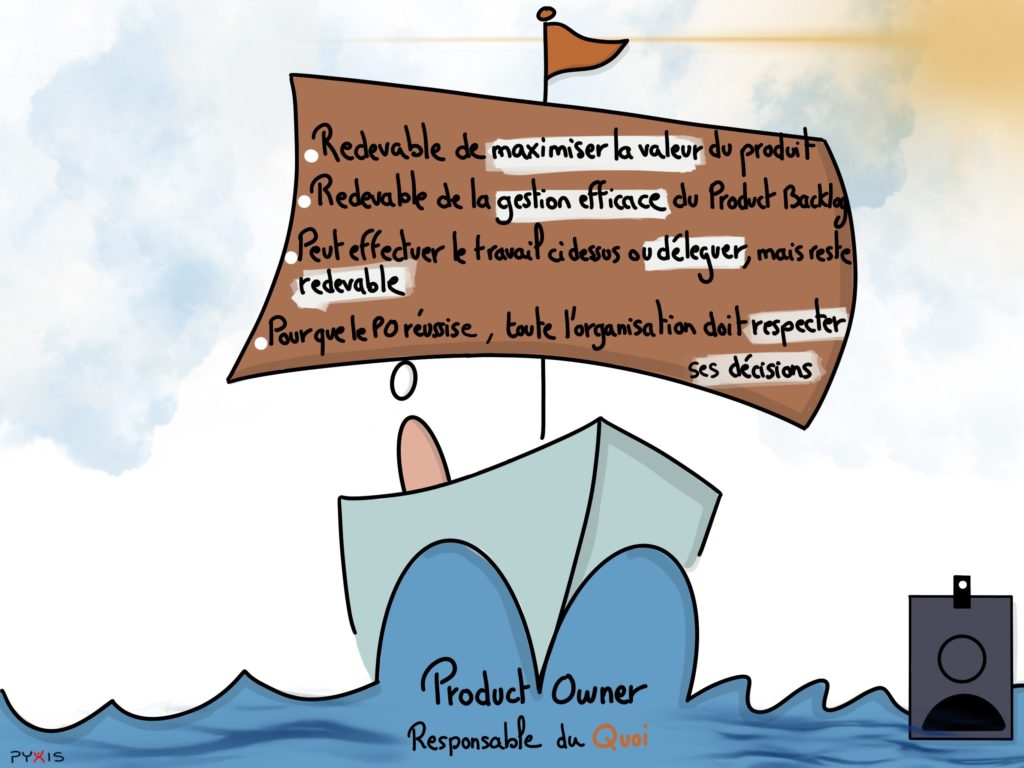 Redevable de maximiser la valeur du produit
Redevable de la gestion efficace du Product Backlog
Peut effectuer le travail ci dessus ou déleguer, mais reste
redevable
Pour que le PO réussise, toute l'organisation doit respecter
ses décisions
Product Owner
Responsable du Quoi
PYXIS